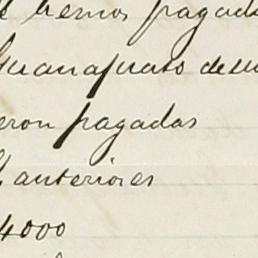 hemos pagado
Guanajuato de su
eron pagadas
anteriores
4000